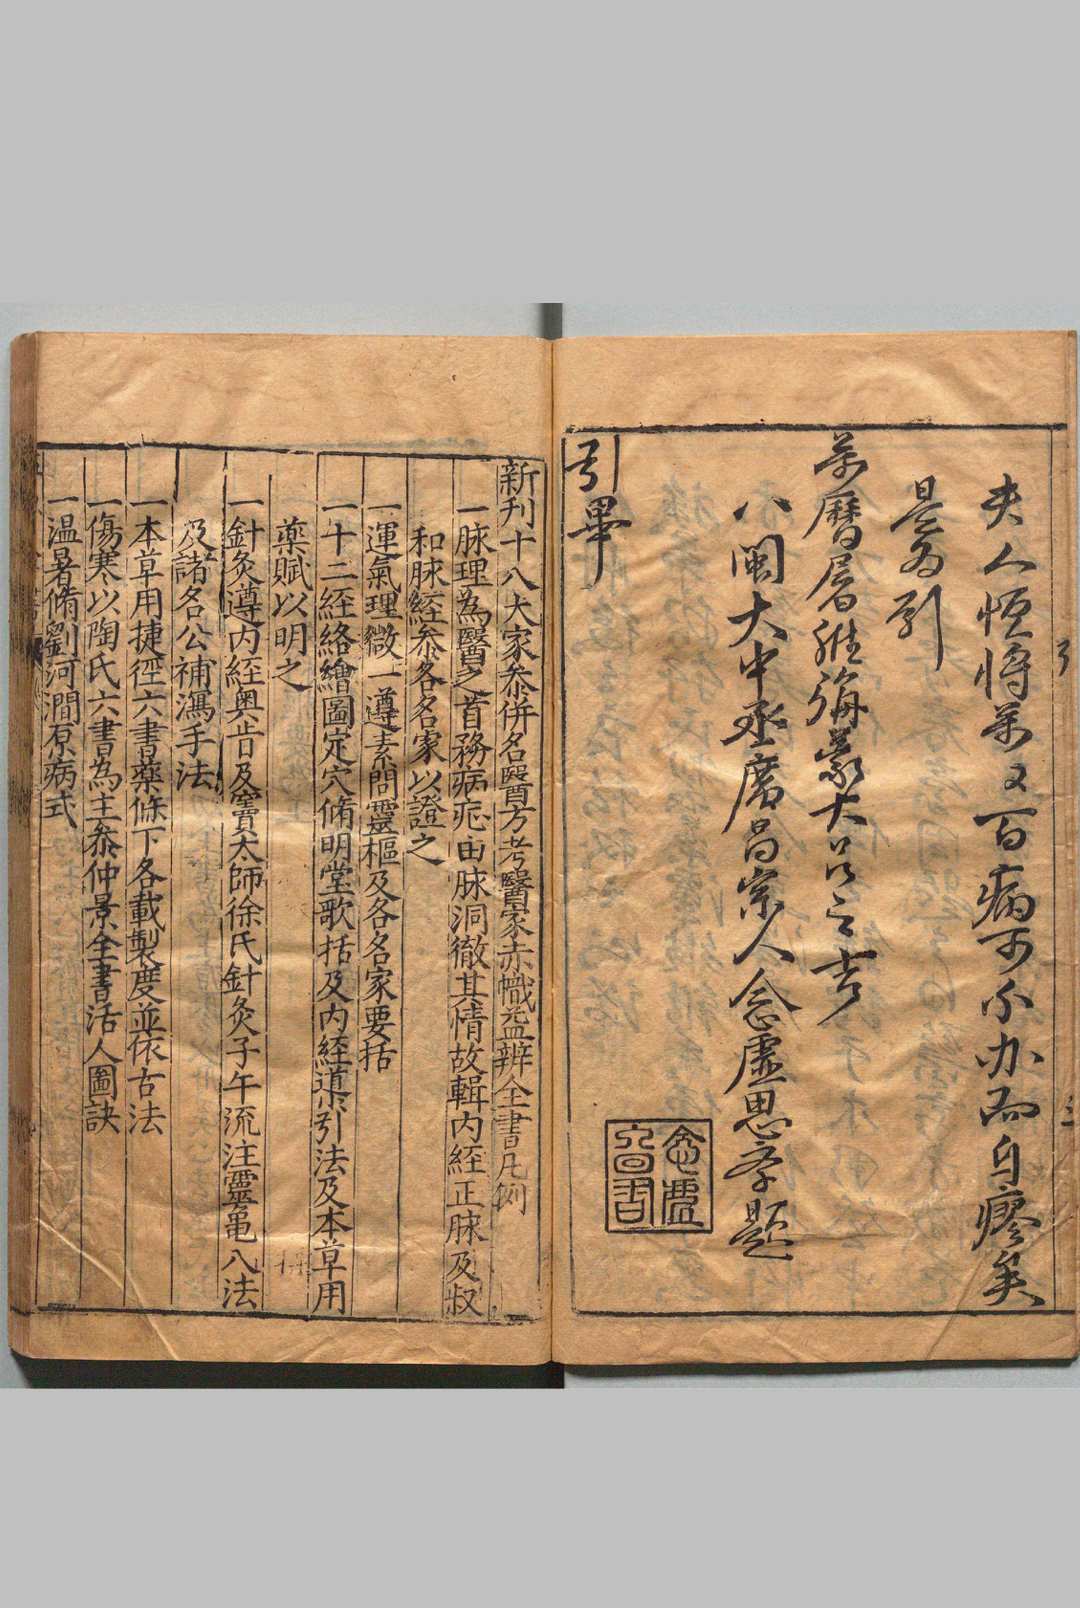 夫人恒將萬又百病可不办而自瘳矣
是為引
萬曆屠維大呂之吉
八閩大中丞廣昌崇人念虛思孝題
引畢
念虛
新刊十八大家叅併名醫方考醫家赤幟益辨全書凡例
一脉理為醫之首務病症由脉洞徹其情故輯内経正脉及叔
和脉經叅各名家以證之
一運氣理微一遵素問靈樞及各名家要括
一十二経絡繪圖定穴俻明堂歌括及内経導引法及本草用
藥賦以明之
一針灸遵内経奥旨及竇太師徐氏針灸子午流注靈龜八法
及諸名公補瀉手法
一本草用捷徑六書藥條下各載製度並依古法
一傷寒以陶氏六書為主叅仲景全書活人圖訣
一温暑俻劉河澗原病式